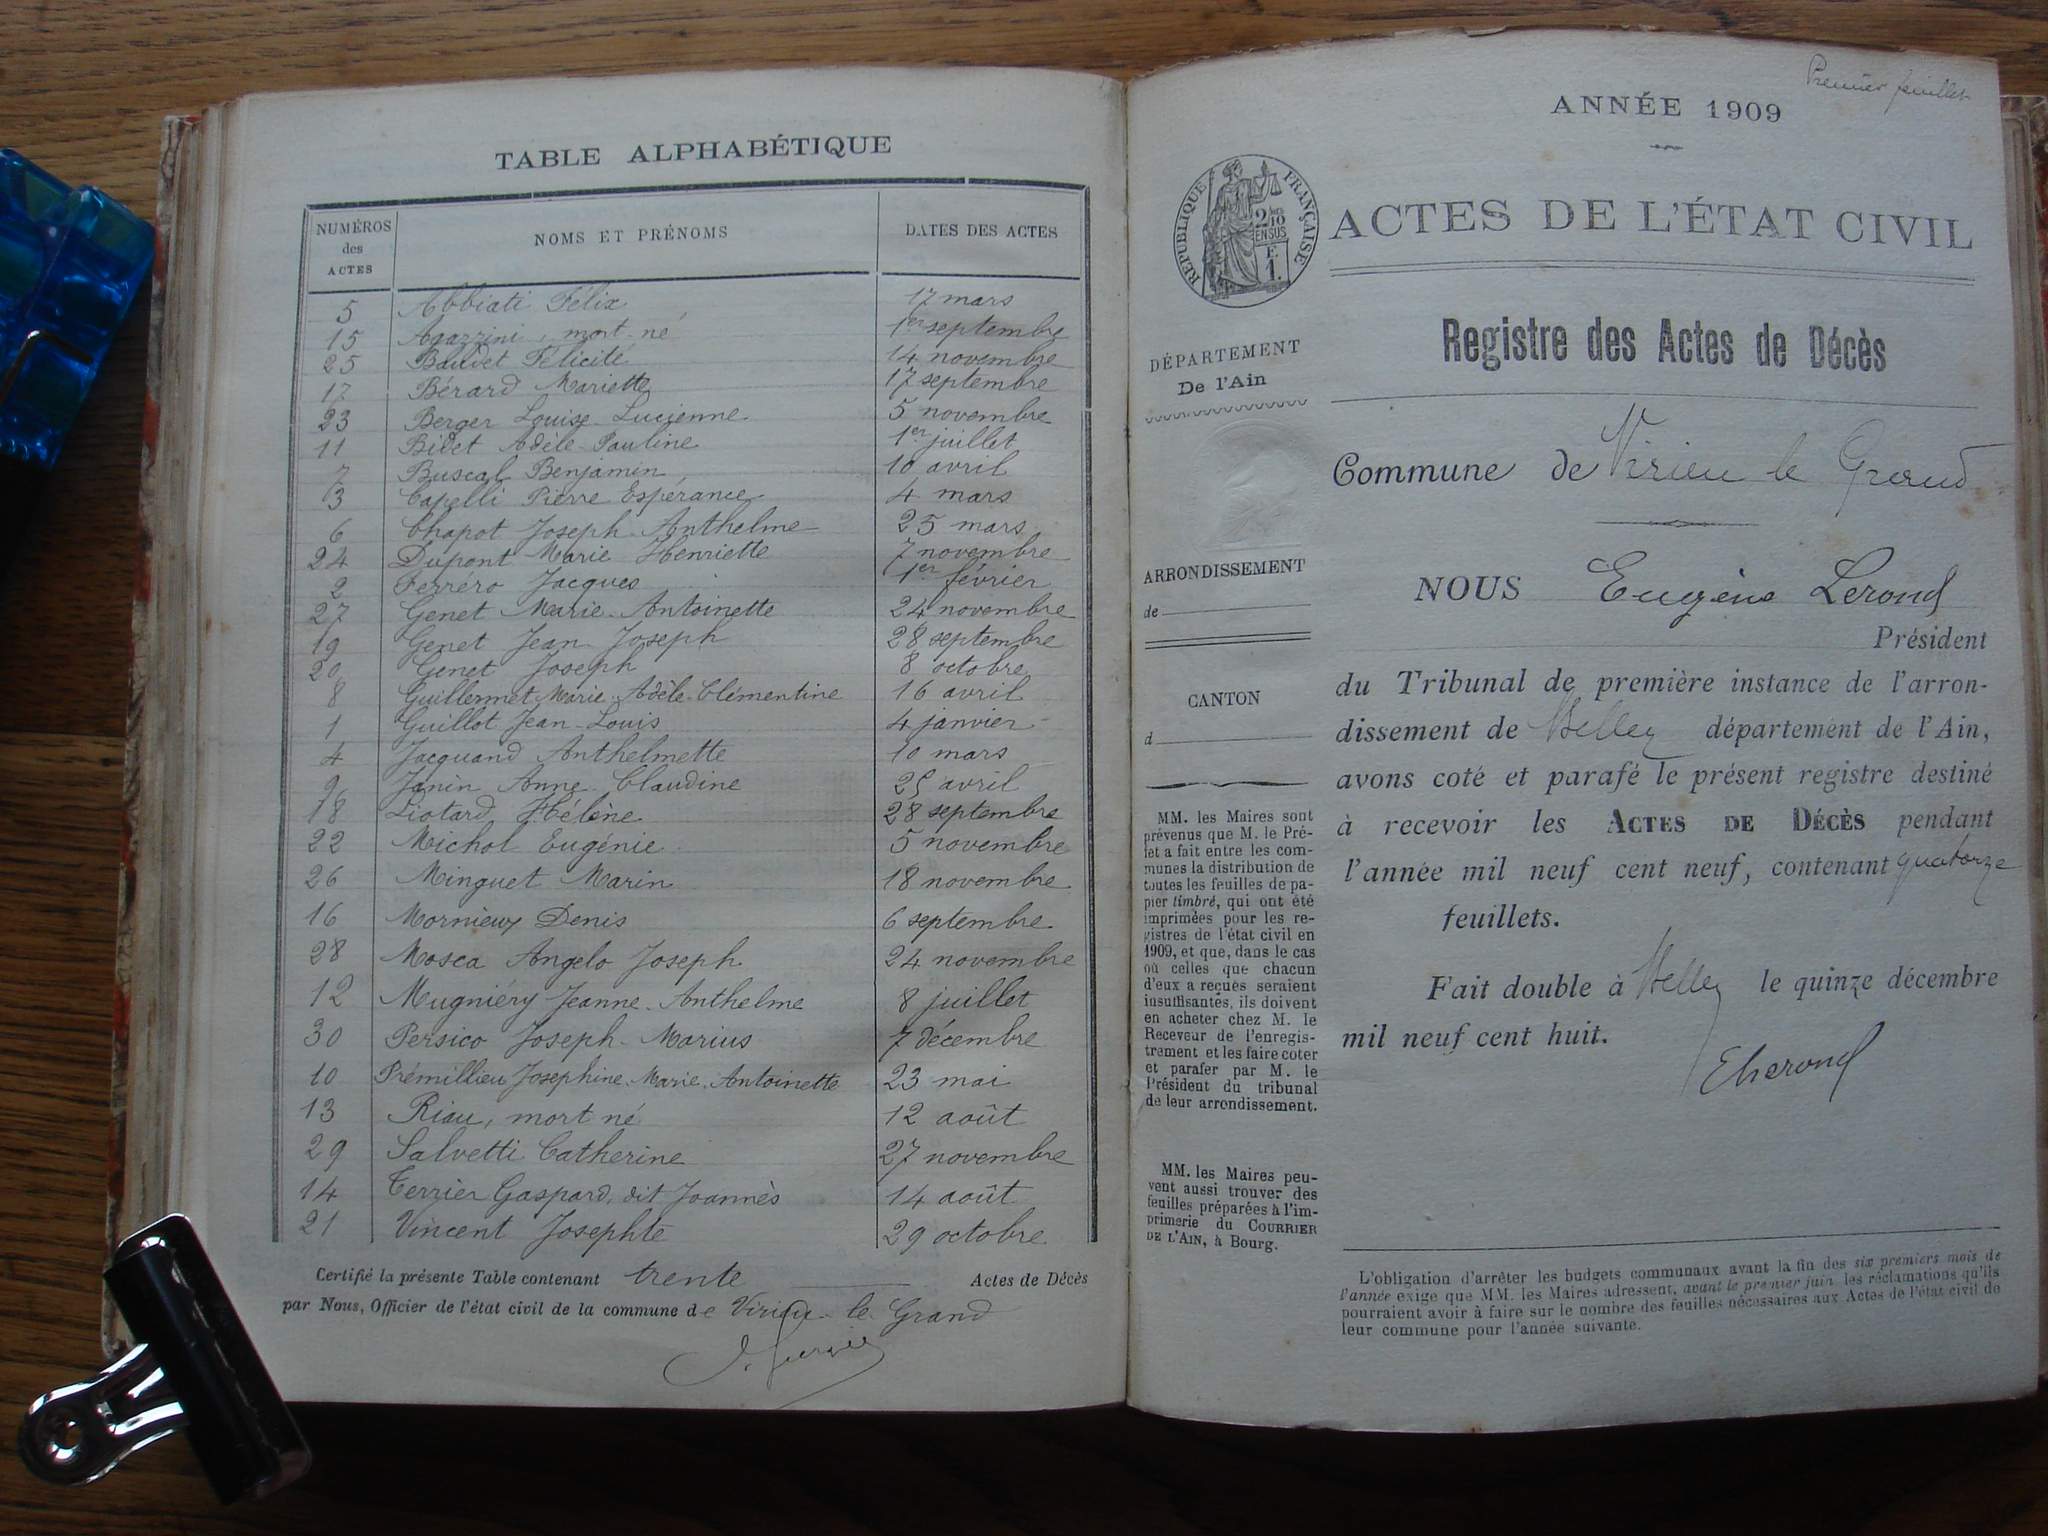 TABLE ALPHABÉTIQUE
NUMÉROS des ACTES NOMS ET PRÉNOMS DATES DES ACTES
5 Abbiati Félix 17 mars
15 Agazzini, mort-né 1er septembre
25 Baudet Félicité 14 novembre
17 Bérard Mariette 17 septembre
23 Berger Louise-Lucienne 5 novembre
11 Bidet Adèle-Pauline 1er juillet
7 Buscal Benjamin 10 avril
3 Capelli Pierre Espérance 4 mars
6 Chapot Joseph-Anthelme 25 mars
24 Dupont Marie Henriette 7 novembre
2 Ferréro Jacques 1er février
27 Genet Marie-Antoinette 24 novembre
19 Genet Jean Joseph 28 septembre
20 Genet Joseph 8 octobre
8 Guillermet Marie-Adèle-Clémentine 16 avril
1 Guillot Jean-Louis 4 janvier
4 Jacquand Anthelmette 10 mars
9 Janin Anne-Claudine 25 avril
18 Liotard Hélène 28 septembre
22 Michol Eugénie 5 novembre
26 Minguet Marin 18 novembre
16 Mornieux Denis 6 septembre
28 Mosca Angelo Joseph 24 novembre
12 Mugniéry Jeanne-Anthelme 8 juillet
30 Persico Joseph-Marius 7 décembre
10 Prémillieu Josephine-Marie-Antoinette 23 mai
13 Riau, mort né 12 août
29 Salvetti Catherine 27 novembre
14 Terrier Gaspard, dit Joannès 14 août
21 Vincent Josephte 29 octobre
Certifié la présente Table contenant trente Actes de Décès
par Nous, Officier de l'état civil de la commune de Virieu-le-Grand
Premier feuillet
ANNÉE 1909
RÉPUBLIQUE FRANÇAISE
2/10
EN SUS
E
1.
ACTES DE L'ÉTAT CIVIL
DÉPARTEMENT
De l'Ain
ARRONDISSEMENT
de
CANTON
d
MM. les Maires sont
prévenus que M. le Pré-
fet a fait entre les com-
munes la distribution de
toutes les feuilles de pa-
pier timbré, qui ont été
imprimées pour les re-
gistres de l'état civil en
1909, et que, dans le cas
où celles que chacun
d'eux a reçues seraient
insuffisantes, ils doivent
en acheter chez M. le
Receveur de l'enregis-
trement et les faire coter
et parafer par M. le
Président du tribunal
de leur arrondissement.
MM. les Maires peu-
vent aussi trouver des
feuilles préparées à l'im-
primerie du COURRIER
DE L'AIN, à Bourg.
Registre des Actes de Décès
Commune de Virieu le Grand
NOUS Eugène Lerond
Président
du Tribunal de première instance de l'arron-
dissement de Belley département de l'Ain,
avons coté et parafé le présent registre destiné
à recevoir les ACTES DE DÉCÈS pendant
l'année mil neuf cent neuf, contenant quatorze
feuillets.
Fait double à Belley le quinze décembre
mil neuf cent huit.
ELerond
L'obligation d'arrêter les budgets communaux avant la fin des six premiers mois de
l'année exige que MM. les Maires adressent, avant le premier juin, les réclamations qu'ils
pourraient avoir à faire sur le nombre des feuilles nécessaires aux Actes de l'état civil de
leur commune pour l'année suivante.